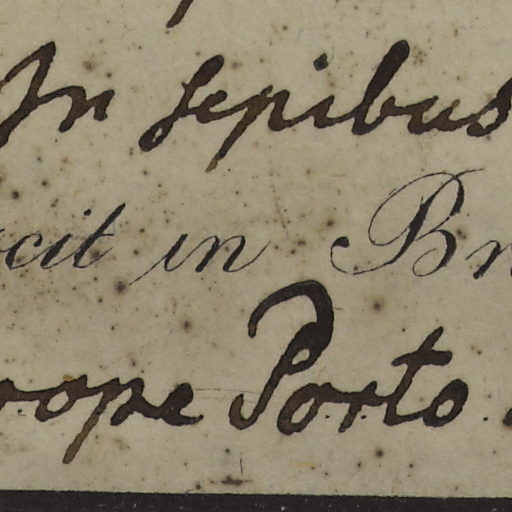 In sepibus
cit in Br
rope Porto